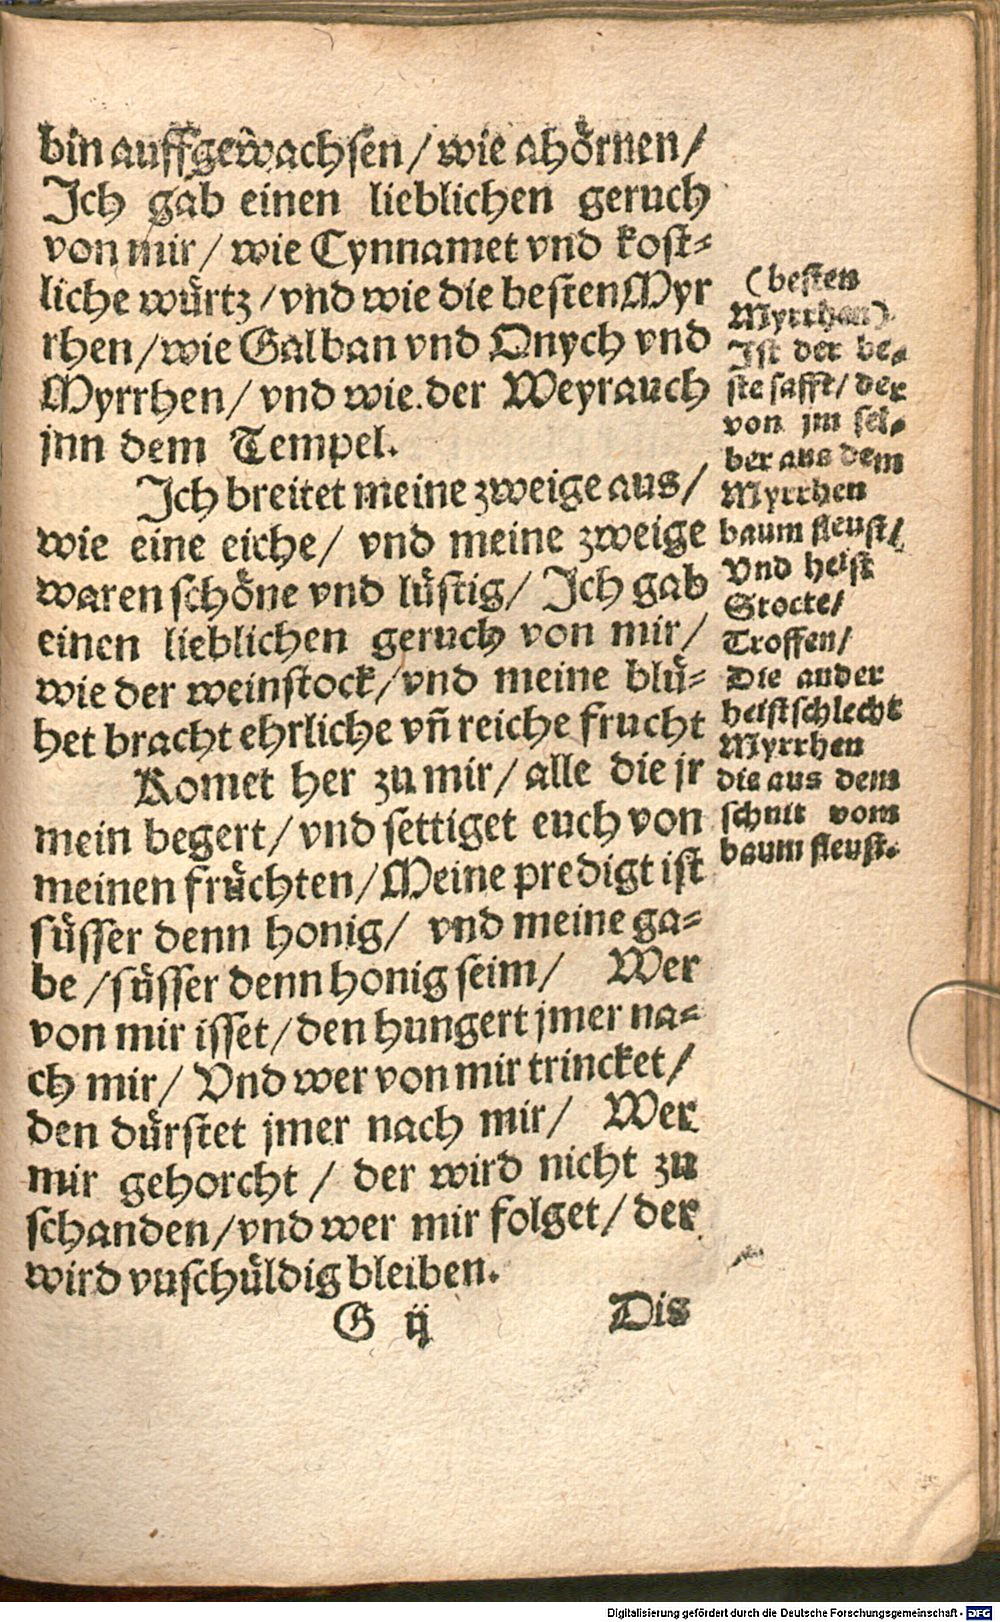 bin auffgewachsen / wie ahörnen /
Ich gab einen lieblichen geruch
von mir / wie Cynnamet vnd kost⸗
liche würtz / vnd wie die besten Myr
rhen / wie Galban vnd Onych vnd
Myrrhen / vnd wie der Weyrauch
jnn dem Tempel.
Ich breitet meine zweige aus /
wie eine eiche / vnd meine zweige
waren schöne vnd lüstig / Ich gab
einen lieblichen geruch von mir /
wie der weinstock / vnd meine blü⸗
het bracht ehrliche vñ reiche frucht
Komet her zu mir / alle die jr
mein begert / vnd settiget euch von
meinen früchten / Meine predigt ist
süsser denn honig / vnd meine ga⸗
be / süsser denn honig seim / Wer
von mir isset / den hungert jmer na⸗
ch mir / Vnd wer von mir trincket /
den dürstet jmer nach mir / Wer
mir gehorcht / der wird nicht zu
schanden / vnd wer mir folget / der
wird vnschüldig bleiben.
G ij Dis
(besten
Myrrhen)
Ist der be⸗
ste safft / der
von jm sel⸗
ber aus dem
Myrrhen
baum fleust /
Vnd heist
Stocte /
Troffen /
Die ander
heist schlecht
Myrrhen
die aus dem
schnit vom
baum fleust.
Digitalisierung gefördert durch die Deutsche Forschungsgemeinschaft - DFG